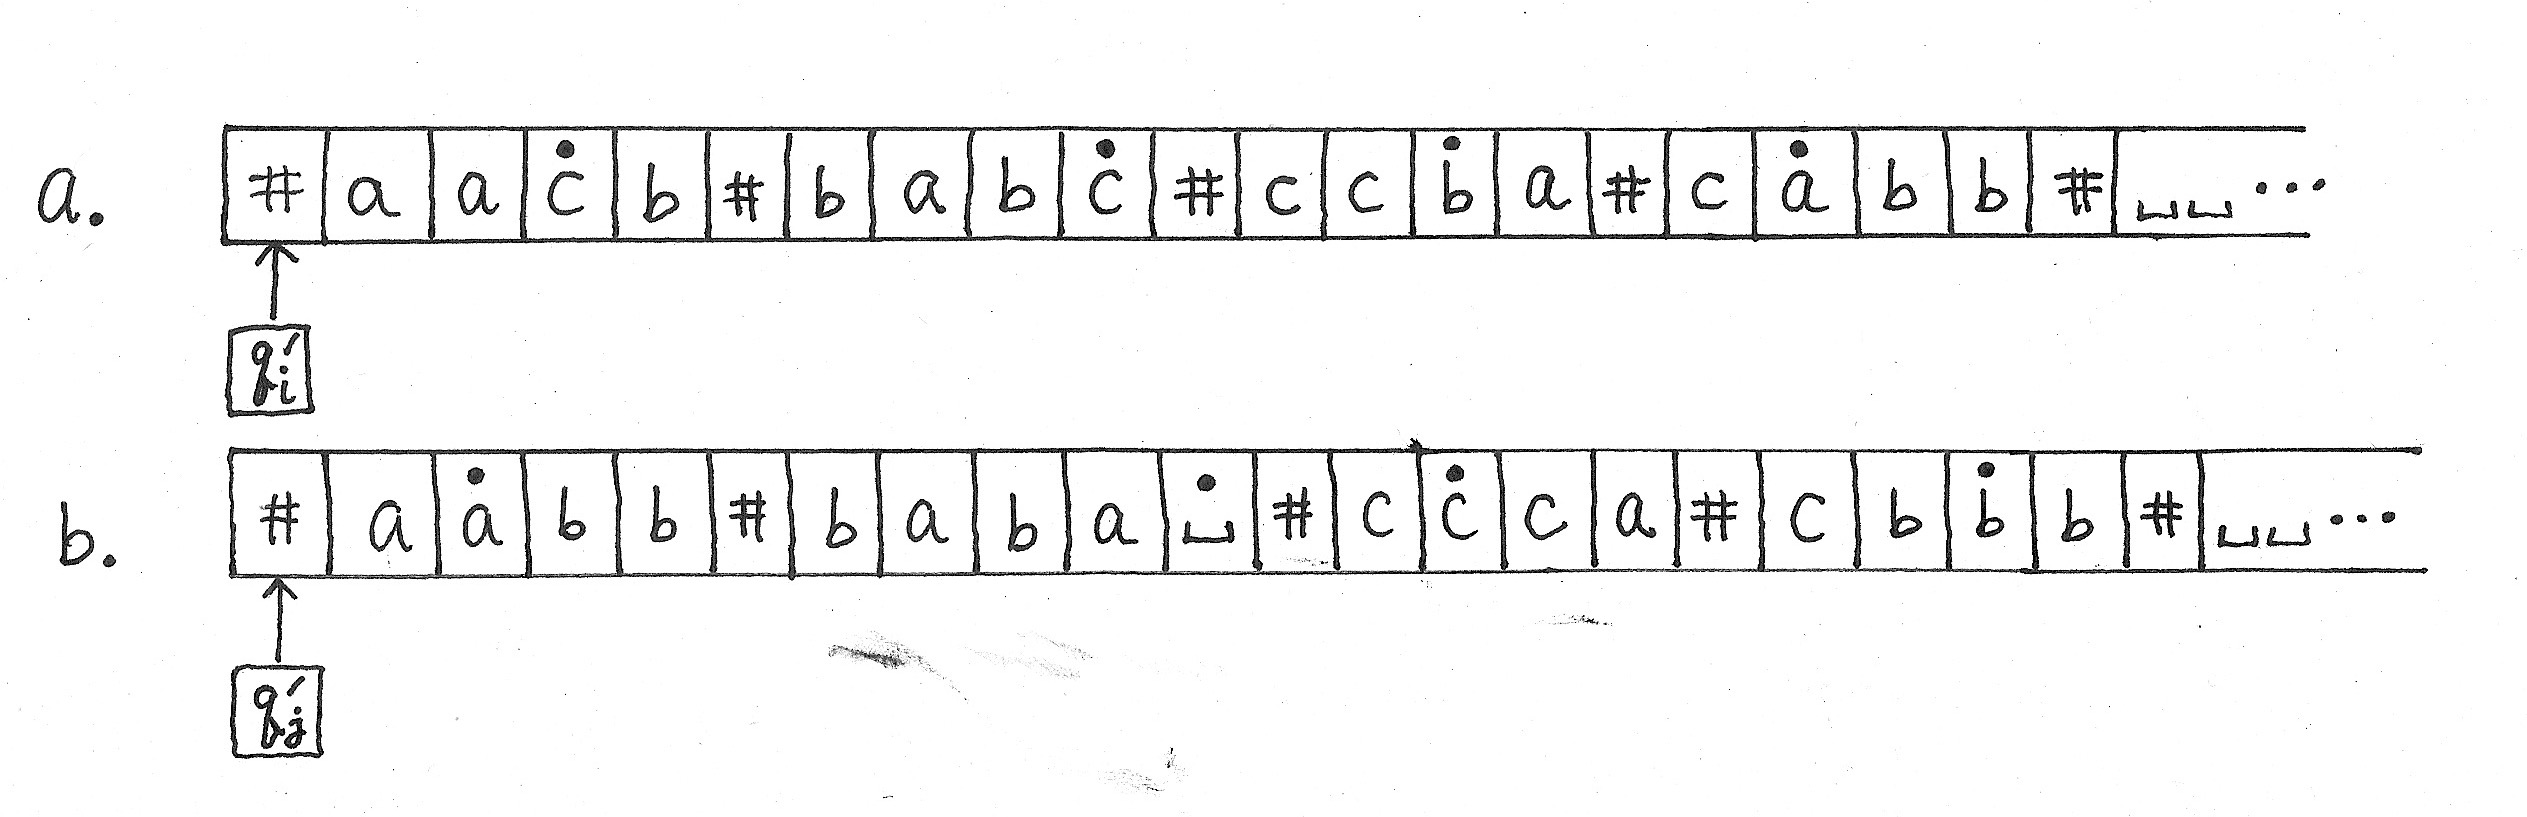 a. # a a ċ b # b a b ċ # c c ḃ a # c ȧ b b # ␣ ␣ ...
q′i
b. # a ȧ b b # b a b a ␣̇ # c ċ c a # c b ḃ b # ␣ ␣ ...
q′j